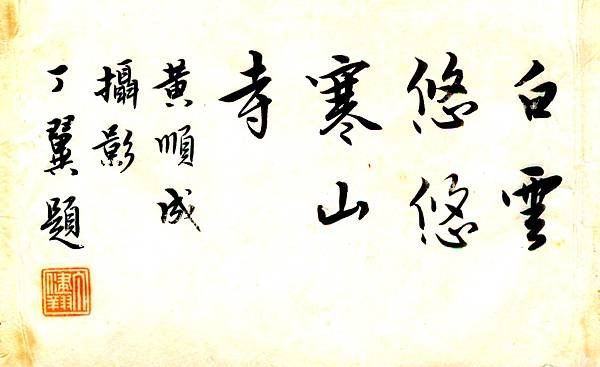 白雲
悠悠
寒山
寺
黃順成
攝影
丁翼題